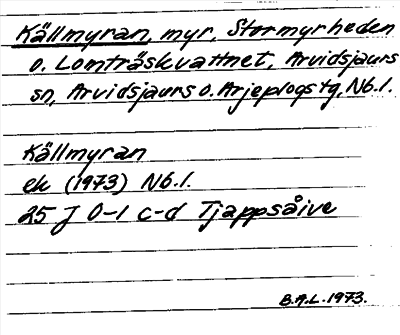 Källmyran, myr, Stormyrheden
o. Lomträskvattnet, Arvidsjaurs
sn, Arvidsjaurs o. Arjeplogs tg, Nb.l.
Källmyran
ek (1973) Nb.l.
25 J 0-1 c-d Tjappsåive
B.A.L. 1973.